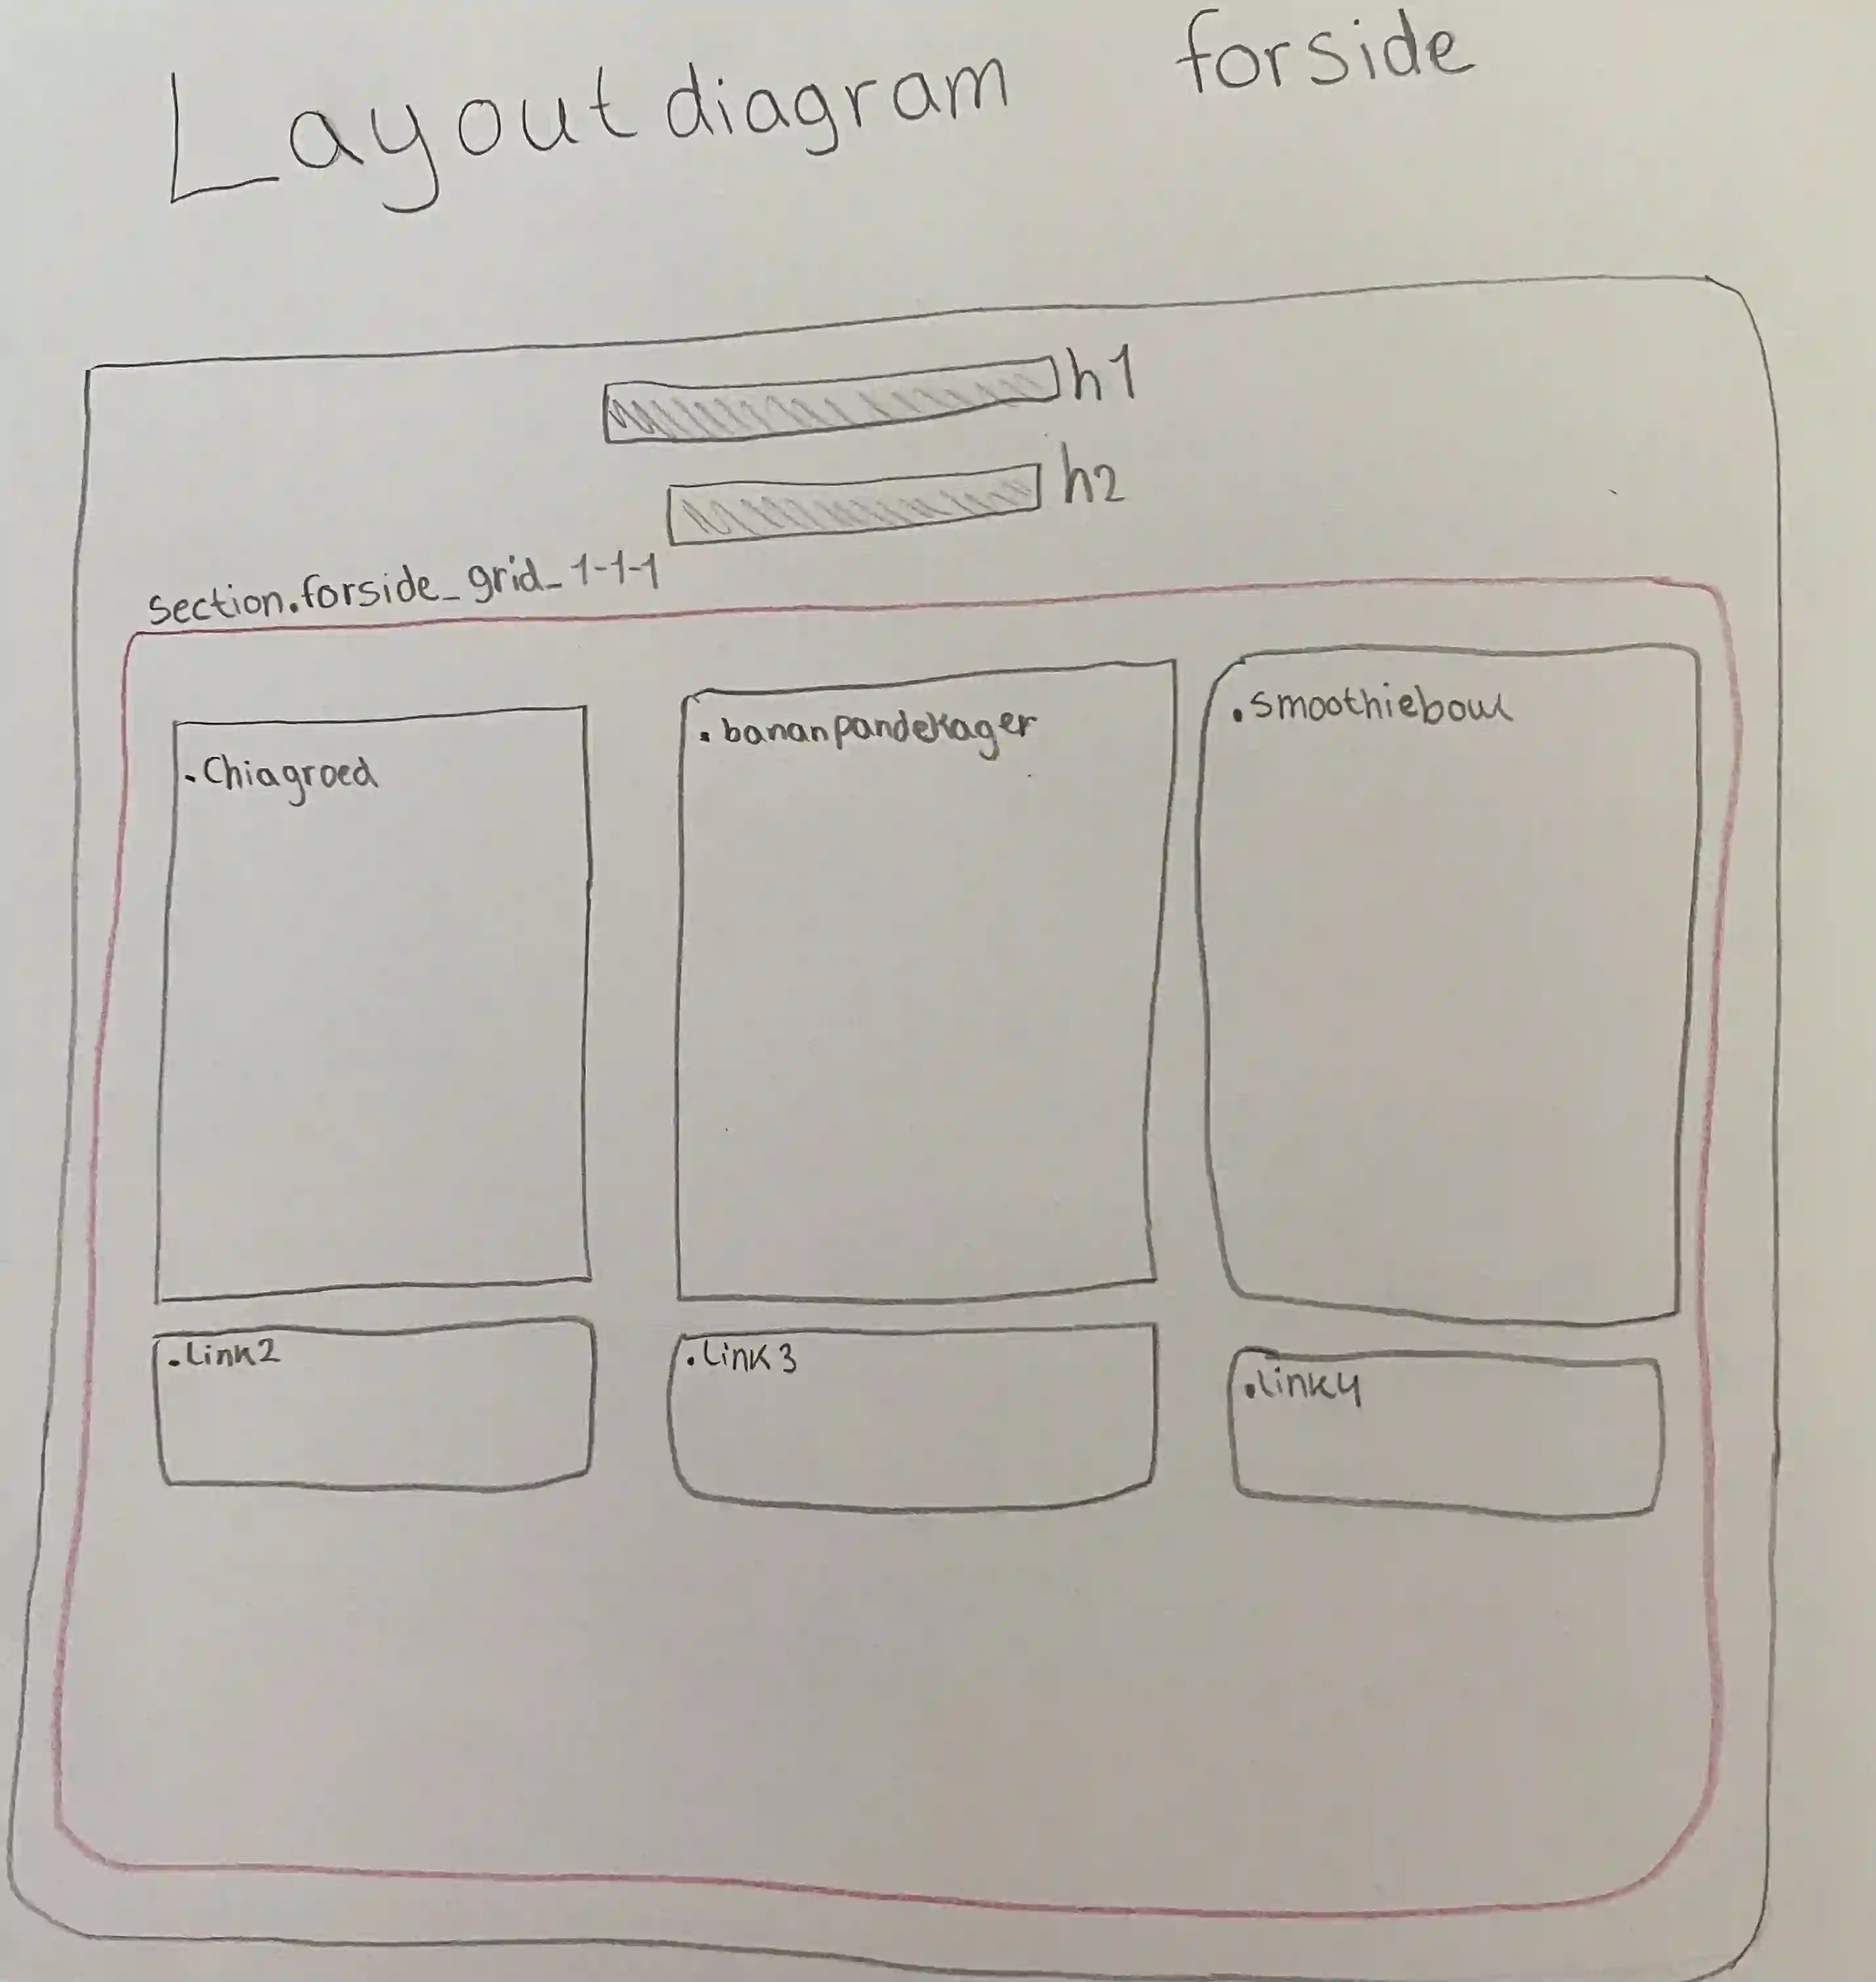 Layout diagram forside
h1
h2
section.forside_grid_1-1-1
.Chiagroed
.bananpandekager
.smoothiebowl
.Link2
.Link3
.link4